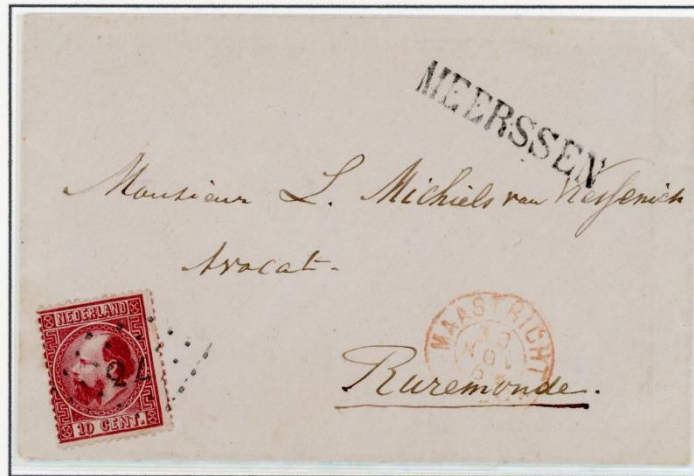 MEERSSEN
Monsieur L. Michiels van Kessenich
Avocat.
NEDERLAND
10 CENT.
MAASTRICHT
Ruremonde.